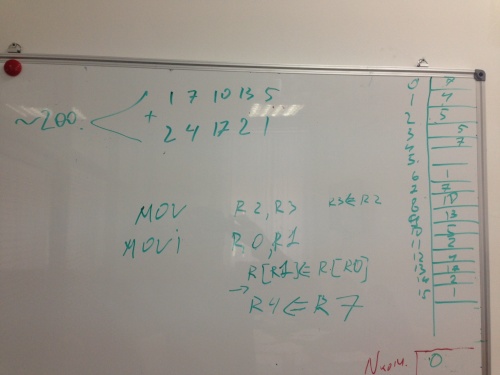 1 7 10 13 5
~200 +
2 4 17 2 1
MOV R2, R3 R3 ⇐ R2
MOVi R0, R1
R[R1] ⇐ R[R0]
→ R4 ⇐ R7
0
1 4
2 5
3 5
4 7
5
6 1
7 7
8 10
9 13
10 5
11 2
12 4
13
14 2
15 1
0